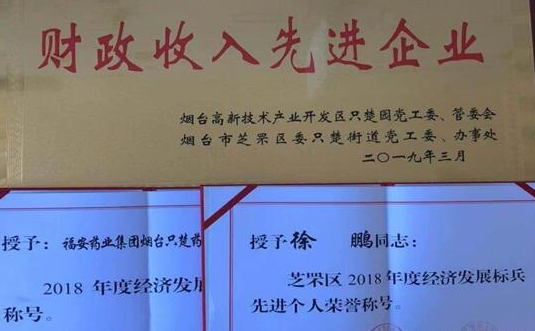 财政收入先进企业
烟台高新技术产业开发区只楚园党工委、管委会
烟台市芝罘区委只楚街道党工委、办事处
二〇一九年三月
授予：福安药业集团烟台只楚药
2018 年度经济发展
称号。
授予徐 鹏同志：
芝罘区 2018 年度经济发展标兵
先进个人荣誉称号。